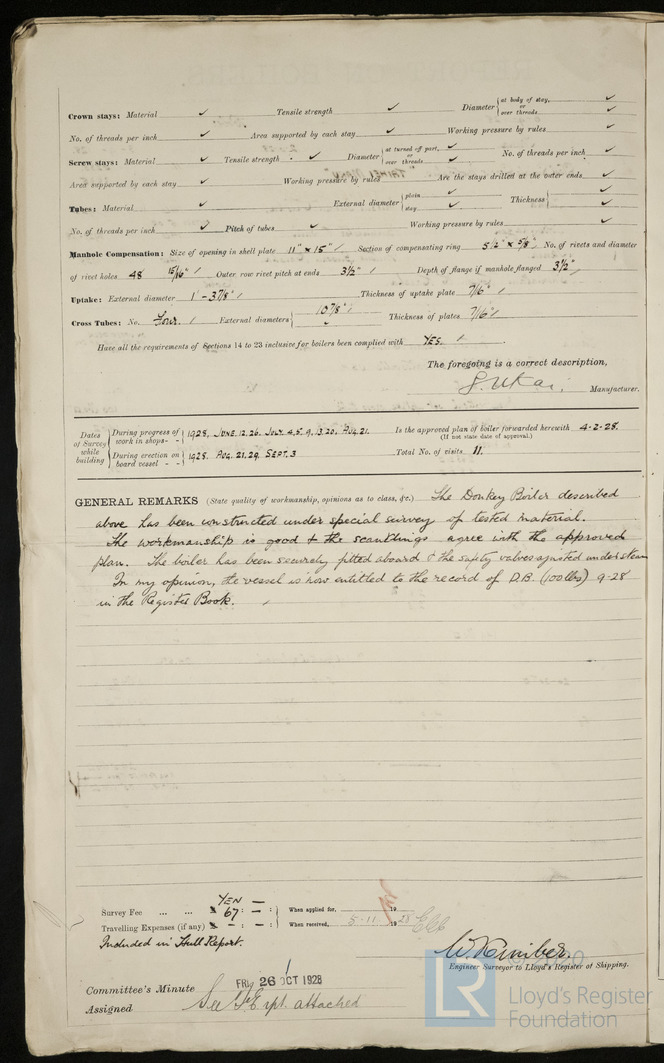 Crown stays: Material ✓ Tensile strength ✓ Diameter { at body of stay, or over threads ✓ ✓
No. of threads per inch ✓ Area supported by each stay ✓ Working pressure by rules ✓
Screw stays: Material ✓ Tensile strength ✓ Diameter { at turned off part, or over threads ✓ ✓ No. of threads per inch ✓
Area supported by each stay ✓ Working pressure by rules ✓ Are the stays drilled at the outer ends ✓
Tubes: Material ✓ External diameter { plain ✓ stay ✓ Thickness { ✓ ✓
No. of threads per inch ✓ Pitch of tubes ✓ Working pressure by rules ✓
Manhole Compensation: Size of opening in shell plate 11" x 15" Section of compensating ring 5 1/2" x 5/8" No. of rivets and diameter
of rivet holes 48 15/16" Outer row rivet pitch at ends 3 1/2" Depth of flange if manhole flanged 3 1/2"
Uptake: External diameter 1' - 3 7/8" Thickness of uptake plate 7/16"
Cross Tubes: No. Four. External diameters { 10 7/8" Thickness of plates 7/16"
Have all the requirements of Sections 14 to 23 inclusive for boilers been complied with YES.
The foregoing is a correct description,
Manufacturer.
Dates of Survey while building { During progress of work in shops - - } 1928, JUNE. 12. 26. JULY. 4. 5. 9. 13. 20. AUG. 21. Is the approved plan of boiler forwarded herewith 4-2-28.
(If not state date of approval.)
{ During erection on board vessel - - } 1928. AUG. 21. 29. SEPT. 3 Total No. of visits 11.
GENERAL REMARKS (State quality of workmanship, opinions as to class, &c.) The Donkey Boiler described
above has been constructed under special survey of tested material.
The workmanship is good & the scantlings agree with the approved
plan. The boiler has been securely fitted aboard & the safety valves adjusted under steam
In my opinion, the vessel is now entitled to the record of D.B. (100 lbs) 9-28
in the Register Book.
YEN —
Survey Fee ... ... 67 : — : } When applied for, 19
Travelling Expenses (if any) — : — : } When received, 5-11 1928
Included in Hull Report.
Engineer Surveyor to Lloyd's Register of Shipping.
Committee's Minute FRI 26 OCT 1928
Assigned See F.E. rpt. attached
LR
Lloyd's Register
Foundation